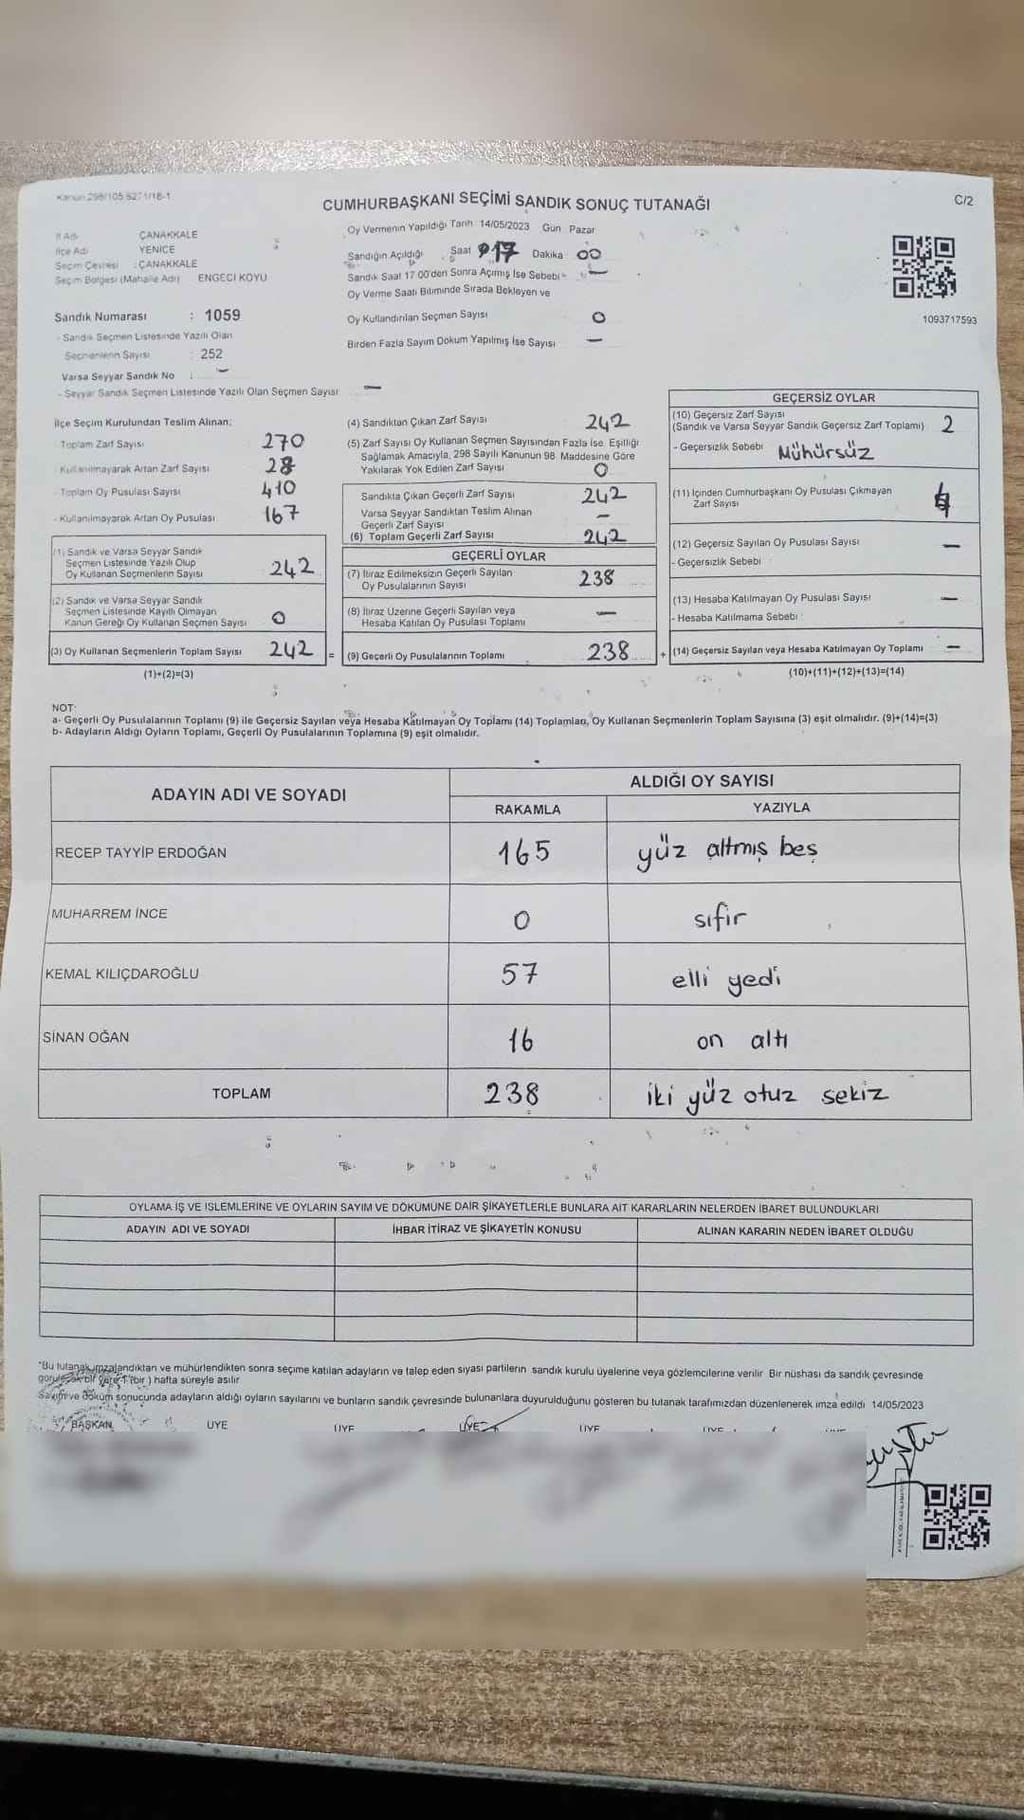 Kanun 298/105 S271/18-1
CUMHURBAŞKANI SEÇİMİ SANDIK SONUÇ TUTANAĞI
C/2
İl Adı ÇANAKKALE
İlçe Adı YENİCE
Seçim Çevresi : ÇANAKKALE
Seçim Bölgesi (Mahalle Adı) ENGECİ KÖYÜ
Sandık Numarası : 1059
- Sandık Seçmen Listesinde Yazılı Olan
Seçmenlerin Sayısı : 252
Varsa Seyyar Sandık No : -
- Seyyar Sandık Seçmen Listesinde Yazılı Olan Seçmen Sayısı -
Oy Vermenin Yapıldığı Tarih 14/05/2023 Gün Pazar
Sandığın Açıldığı Saat 17 Dakika 00
Sandık Saat 17 00'den Sonra Açımış İse Sebebi -
Oy Verme Saati Bitiminde Sırada Bekleyen ve
Oy Kullandırılan Seçmen Sayısı 0
Birden Fazla Sayım Döküm Yapılmış İse Sayısı -
1093717593
İlçe Seçim Kurulundan Teslim Alınan:
- Toplam Zarf Sayısı 270
- Kullanılmayarak Artan Zarf Sayısı 28
- Toplam Oy Pusulası Sayısı 410
- Kullanılmayarak Artan Oy Pusulası 167
(1) Sandık ve Varsa Seyyar Sandık
Seçmen Listesinde Yazılı Olup
Oy Kullanan Seçmenlerin Sayısı 242
(2) Sandık ve Varsa Seyyar Sandık
Seçmen Listesinde Kayıtlı Olmayan
Kanun Gereği Oy Kullanan Seçmen Sayısı 0
(3) Oy Kullanan Seçmenlerin Toplam Sayısı 242 =
(1)+(2)=(3)
(4) Sandıktan Çıkan Zarf Sayısı 242
(5) Zarf Sayısı Oy Kullanan Seçmen Sayısından Fazla İse, Eşitliği
Sağlamak Amacıyla, 298 Sayılı Kanunun 98. Maddesine Göre
Yakılarak Yok Edilen Zarf Sayısı 0
Sandıkta Çıkan Geçerli Zarf Sayısı 242
Varsa Seyyar Sandıktan Teslim Alınan
Geçerli Zarf Sayısı -
(6) Toplam Geçerli Zarf Sayısı 242
GEÇERLİ OYLAR
(7) İtiraz Edilmeksizin Geçerli Sayılan
Oy Pusulalarının Sayısı 238
(8) İtiraz Üzerine Geçerli Sayılan veya
Hesaba Katılan Oy Pusulası Toplamı -
(9) Geçerli Oy Pusulalarının Toplamı 238 +
GEÇERSİZ OYLAR
(10) Geçersiz Zarf Sayısı
(Sandık ve Varsa Seyyar Sandık Geçersiz Zarf Toplamı) 2
- Geçersizlik Sebebi Mühürsüz
(11) İçinden Cumhurbaşkanı Oy Pusulası Çıkmayan
Zarf Sayısı
(12) Geçersiz Sayılan Oy Pusulası Sayısı -
- Geçersizlik Sebebi
(13) Hesaba Katılmayan Oy Pusulası Sayısı -
- Hesaba Katılmama Sebebi :
(14) Geçersiz Sayılan veya Hesaba Katılmayan Oy Toplamı -
(10)+(11)+(12)+(13)=(14)
NOT:
a- Geçerli Oy Pusulalarının Toplamı (9) ile Geçersiz Sayılan veya Hesaba Katılmayan Oy Toplamı (14) Toplamları, Oy Kullanan Seçmenlerin Toplam Sayısına (3) eşit olmalıdır. (9)+(14)=(3)
b- Adayların Aldığı Oyların Toplamı, Geçerli Oy Pusulalarının Toplamına (9) eşit olmalıdır.
ADAYIN ADI VE SOYADI ALDIĞI OY SAYISI
RAKAMLA YAZIYLA
RECEP TAYYİP ERDOĞAN 165 yüz altmış beş
MUHARREM İNCE 0 sıfır
KEMAL KILIÇDAROĞLU 57 elli yedi
SİNAN OĞAN 16 on altı
TOPLAM 238 iki yüz otuz sekiz
OYLAMA İŞ VE İŞLEMLERİNE VE OYLARIN SAYIM VE DÖKÜMÜNE DAİR ŞİKAYETLERLE BUNLARA AİT KARARLARIN NELERDEN İBARET BULUNDUKLARI
ADAYIN ADI VE SOYADI İHBAR İTİRAZ VE ŞİKAYETİN KONUSU ALINAN KARARIN NEDEN İBARET OLDUĞU
"Bu tutanak imzalandıktan ve mühürlendikten sonra seçime katılan adayların ve talep eden siyasi partilerin sandık kurulu üyelerine veya gözlemcilerine verilir Bir nüshası da sandık çevresinde
görülecek bir yere 1 (bir) hafta süreyle asılır
Sayım ve döküm sonucunda adayların aldığı oyların sayılarını ve bunların sandık çevresinde bulunanlara duyurulduğunu gösteren bu tutanak tarafımızdan düzenlenerek imza edildi 14/05/2023
BAŞKAN ÜYE ÜYE ÜYE ÜYE ÜYE